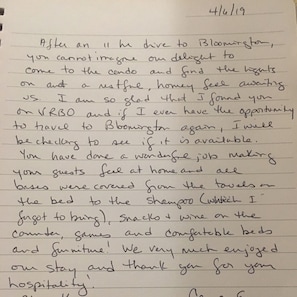 4/6/19
After an 11 hr drive to Bloomington,
you cannot imagine our delight to
come to the condo and find the lights
on and a restful, homey feel awaiting
us. I am so glad that I found you
on VRBO and if I ever have the opportunity
to travel to Bloomington again, I will
be checking to see if it is available.
You have done a wonderful job making
your guests feel at home and all
bases were covered from the towels on
the bed to the shampoo (which I
forgot to bring), snacks + wine on the
counter, games and comfortable beds
and furniture! We very much enjoyed
our stay and thank you for your
hospitality!